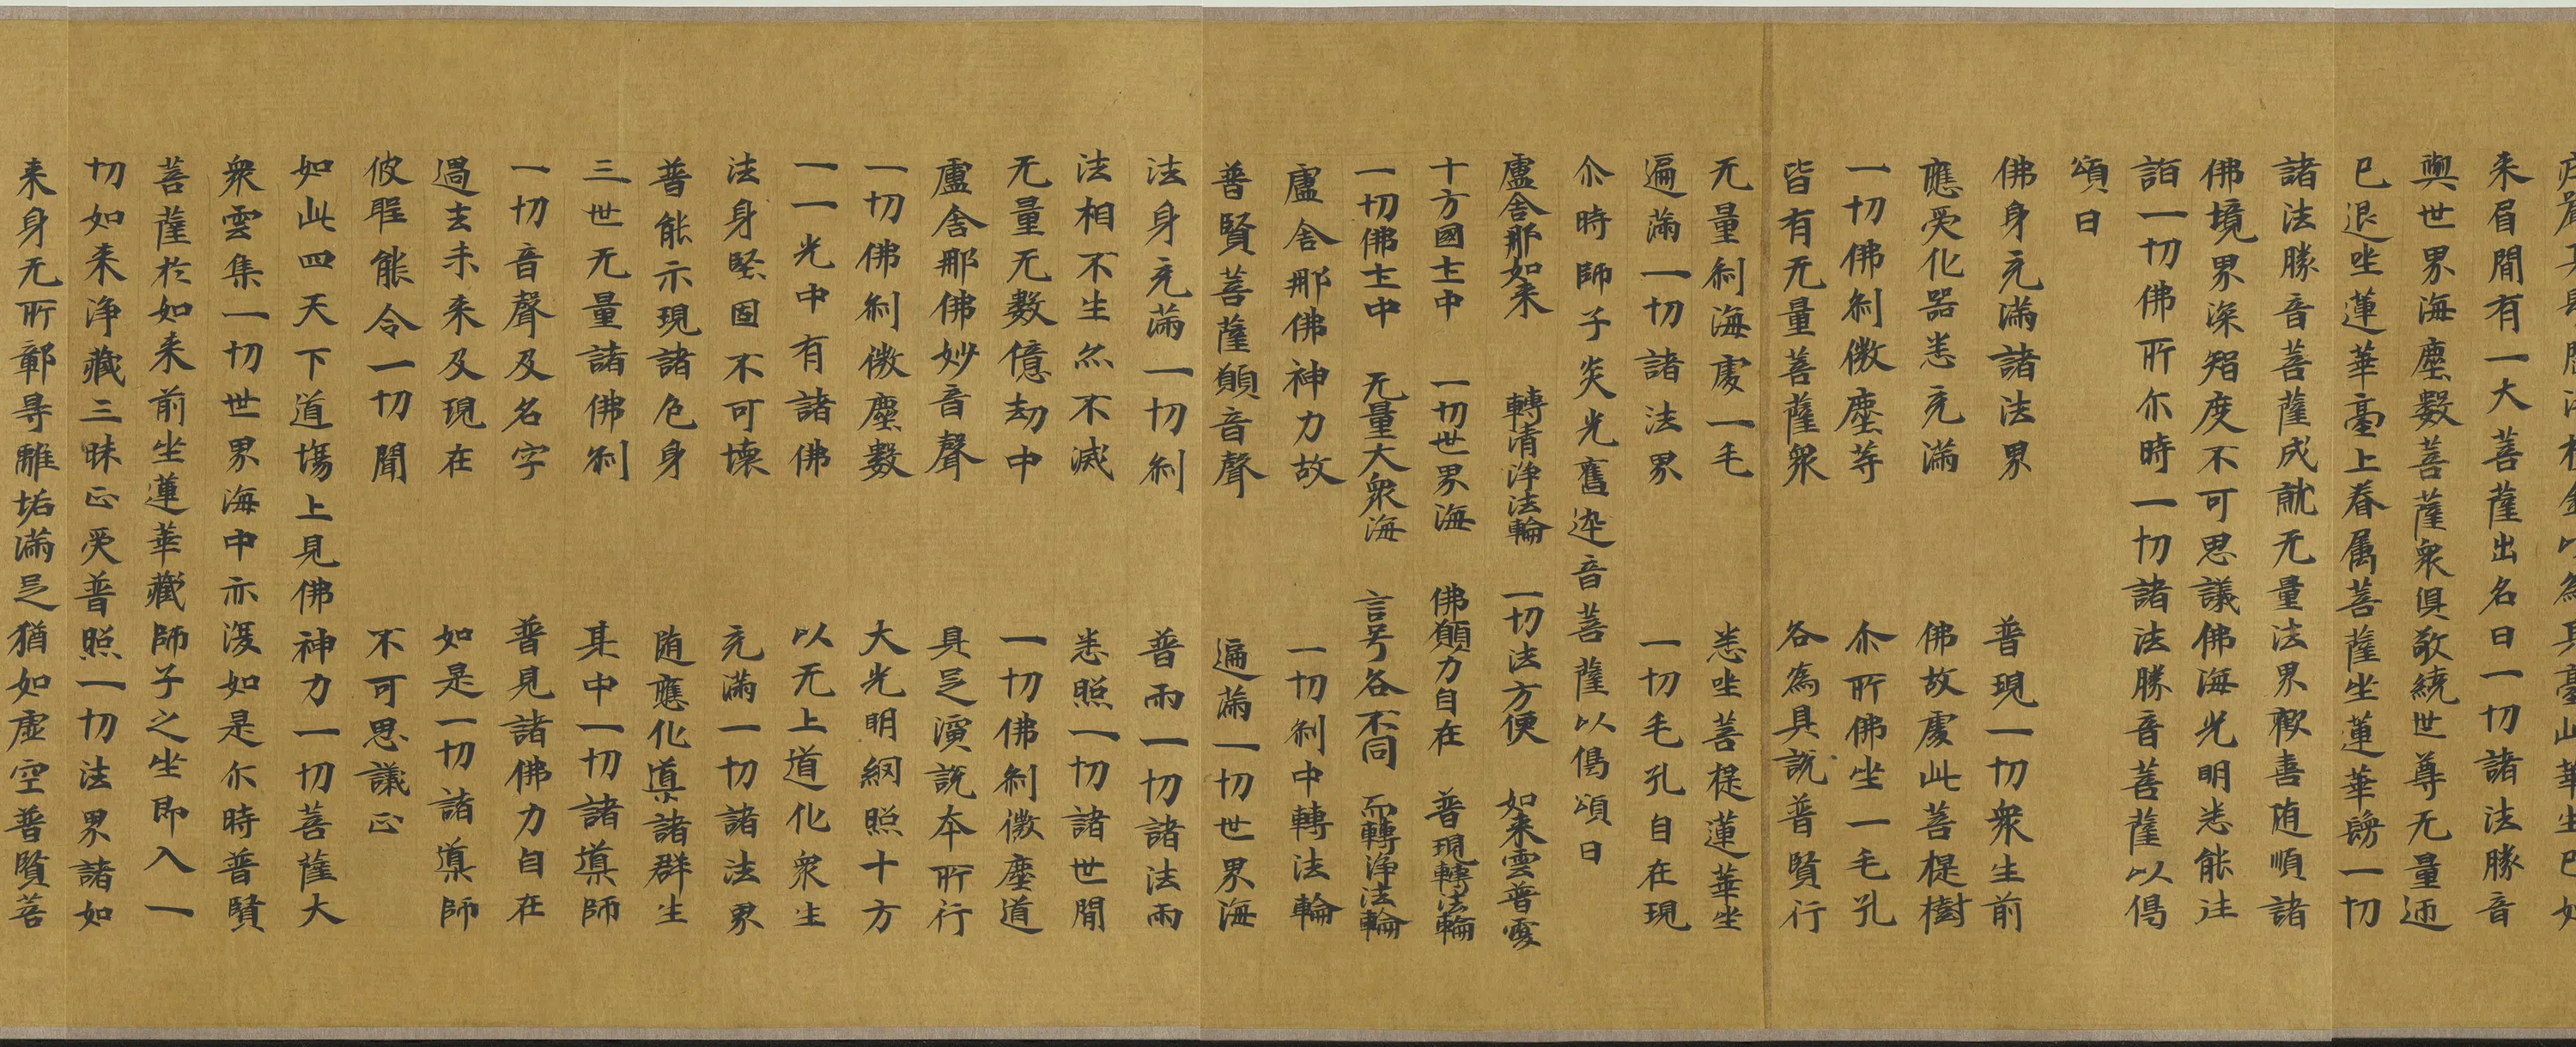 来眉間有一大菩薩出名曰一切諸法勝音
與世界海塵數菩薩衆俱敬繞世尊无量迊
已退坐蓮華臺上眷属菩薩坐蓮華鬚一切
諸法勝音菩薩成就无量法界歡喜随順諸
佛境界深智度不可思議佛海光明悉能往
詣一切佛所尒時一切諸法勝音菩薩以偈
頌曰
佛身充滿諸法界 普現一切衆生前
應受化器悉充滿 佛故處此菩提樹
一切佛刹微塵等 尒所佛坐一毛孔
皆有无量菩薩衆 各為具說普賢行
无量刹海處一毛 悉坐菩提蓮華坐
遍滿一切諸法界 一切毛孔自在現
尒時師子炎光舊迅音菩薩以偈頌曰
盧舍那如来 轉清淨法輪 一切法方便 如来雲普覆
十方國土中 一切世界海 佛願力自在 普現轉法輪
一切佛土中 无量大衆海 言号各不同 而轉淨法輪
盧舍那佛神力故 一切刹中轉法輪
普賢菩薩願音聲 遍滿一切世界海
法身充滿一切刹 普雨一切諸法雨
法相不生亦不滅 悉照一切諸世間
无量无數億劫中 一切佛刹微塵道
盧舍那佛妙音聲 具足演說本所行
一切佛刹微塵數 大光明網照十方
一一光中有諸佛 以无上道化衆生
法身堅固不可壞 充滿一切諸法界
普能示現諸色身 随應化導諸群生
三世无量諸佛刹 其中一切諸導師
一切音聲及名字 普見諸佛力自在
過去未来及現在 如是一切諸導師
彼能令一切聞 不可思議正
如此四天下道場上見佛神力一切菩薩大
衆雲集一切世界海中亦復如是尒時普賢
菩薩於如来前坐蓮華藏師子之坐即入一
切如来淨藏三昧正受普照一切法界諸如
来身无所鄣㝵離垢滿足猶如虚空普賢菩